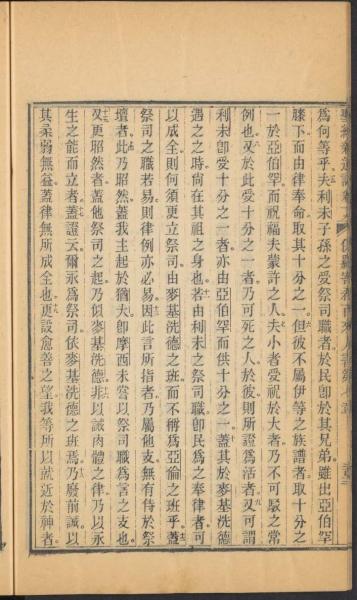 為何等乎夫利未子孫之受祭司職者於民卽於其兄弟雖出亞伯罕
膝下而由律奉命取其十分之一但彼不屬伊等之族譜者取十分之
一於亞伯罕而祝福夫蒙許之人夫小者受祝於大者乃不可駁之常
例也又於此受十分之一者乃可死之人於彼則所證為活者又可謂
利未卽受十分之一者亦由亞伯罕而供十分之一蓋其於麥基洗德
遇之之時尚在其祖之身也若由利未之祭司職卽民為之奉律者可
以成全則何須更立祭司由麥基洗德之班而不稱為亞倫之班乎蓋
祭司之職若易則律例亦必易因此言所指者乃屬他支無有侍於祭
壇者此乃昭然蓋我主起於猶大卽摩西未嘗以祭司職為言之支也
又更昭然者蓋他祭司之起乃似麥基洗德非以誡肉體之律乃以永
生之能而立者蓋證云爾永為祭司依麥基洗德之班焉乃廢前誡以
其柔弱無益蓋律無所成全也更設愈善之望我等所以就近於神者